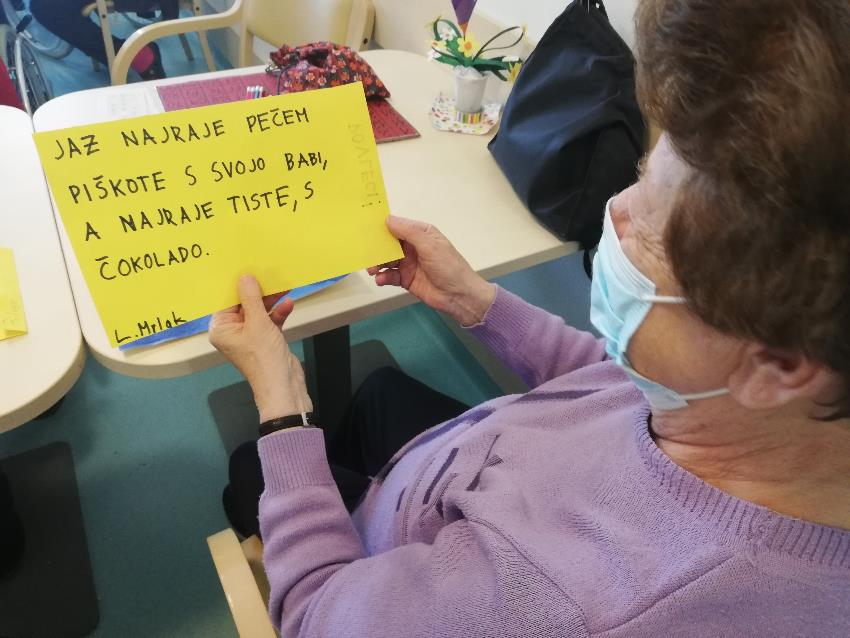 JAZ NAJRAJE PEČEM
PIŠKOTE S SVOJO BABI,
A NAJRAJE TISTE, S
ČOKOLADO.
L. Mrlak